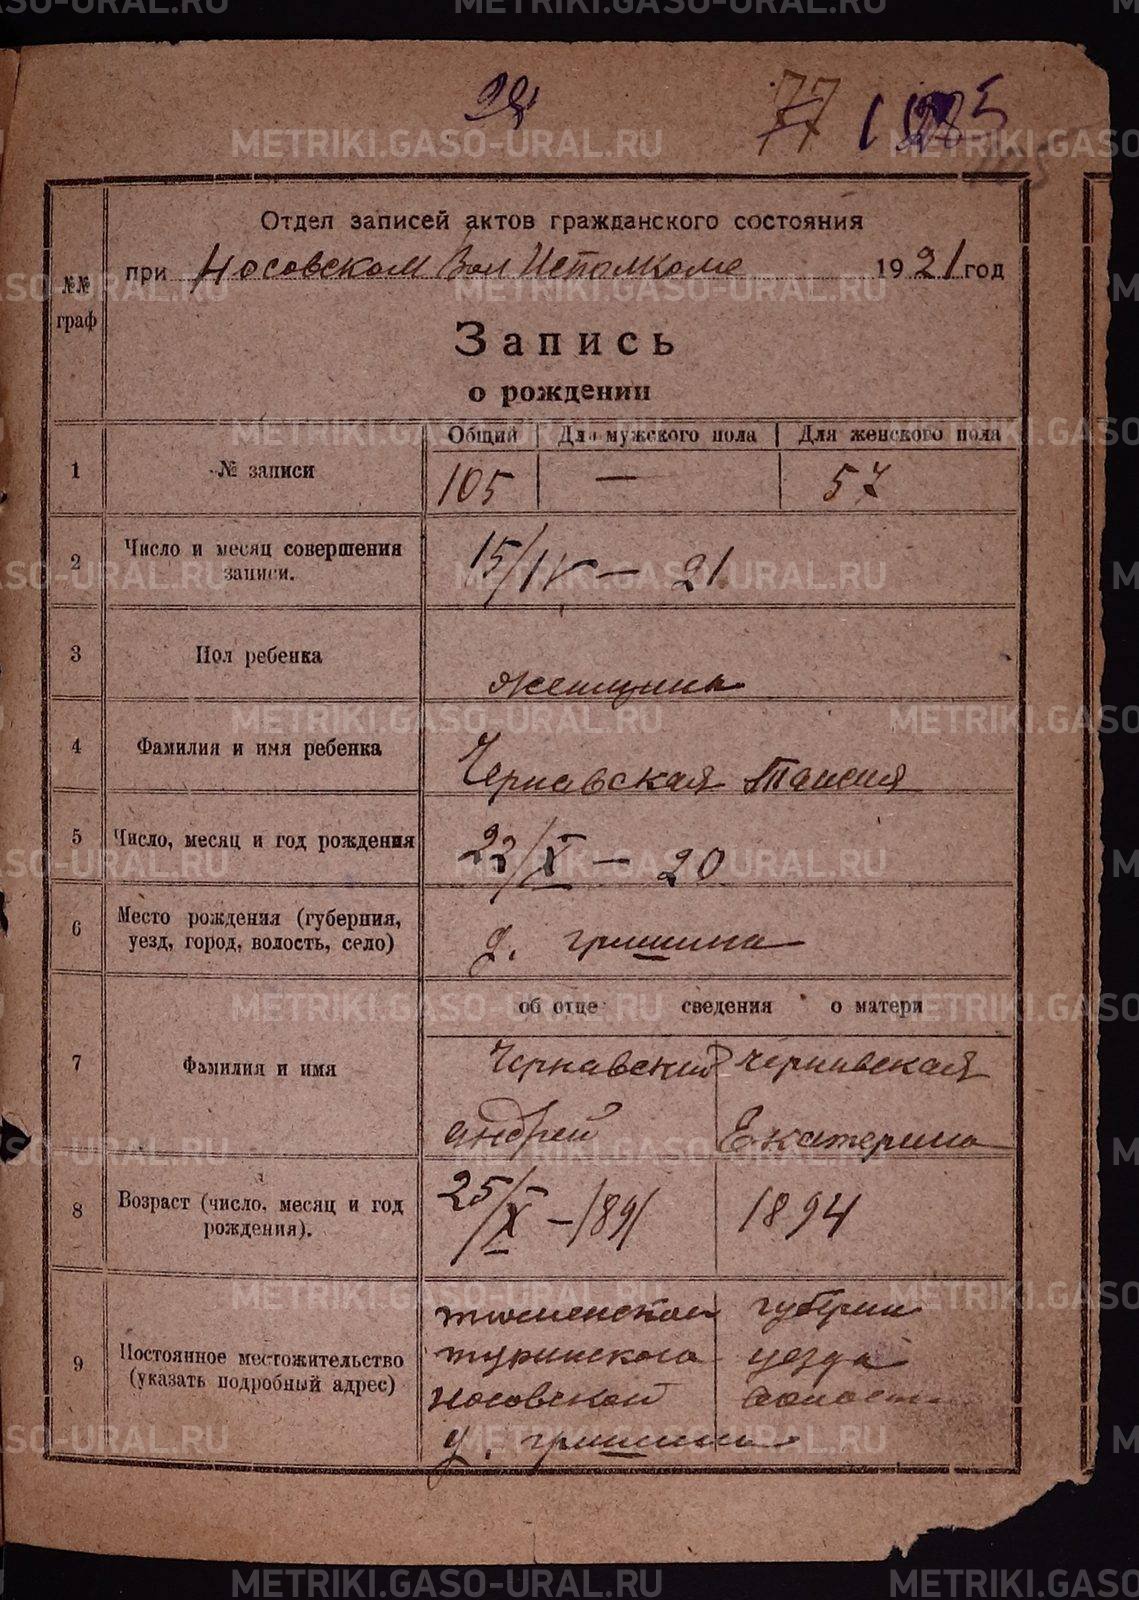 METRIKI.GASO-URAL.RU
77
Отдел записей актов гражданского состояния
при Носовском Вол Исполкоме 1921 год
№№ граф
Запись
о рождении
Общий Для мужского пола Для женского пола
1 № записи 105 — 57
2 Число и месяц совершения записи. 15/IV — 21
3 Пол ребенка женщина
4 Фамилия и имя ребенка Чернавская Таисия
5 Число, месяц и год рождения 22/X — 20
6 Место рождения (губерния, уезд, город, волость, село) д. гришина
об отце сведения о матери
7 Фамилия и имя Чернавский Чернавская
андрей Екатерина
8 Возраст (число, месяц и год рождения). 25/X — 1891 1894
9 Постоянное местожительство (указать подробный адрес)
тюменской губернии
туринского уезда
носовской волости
д. гришина